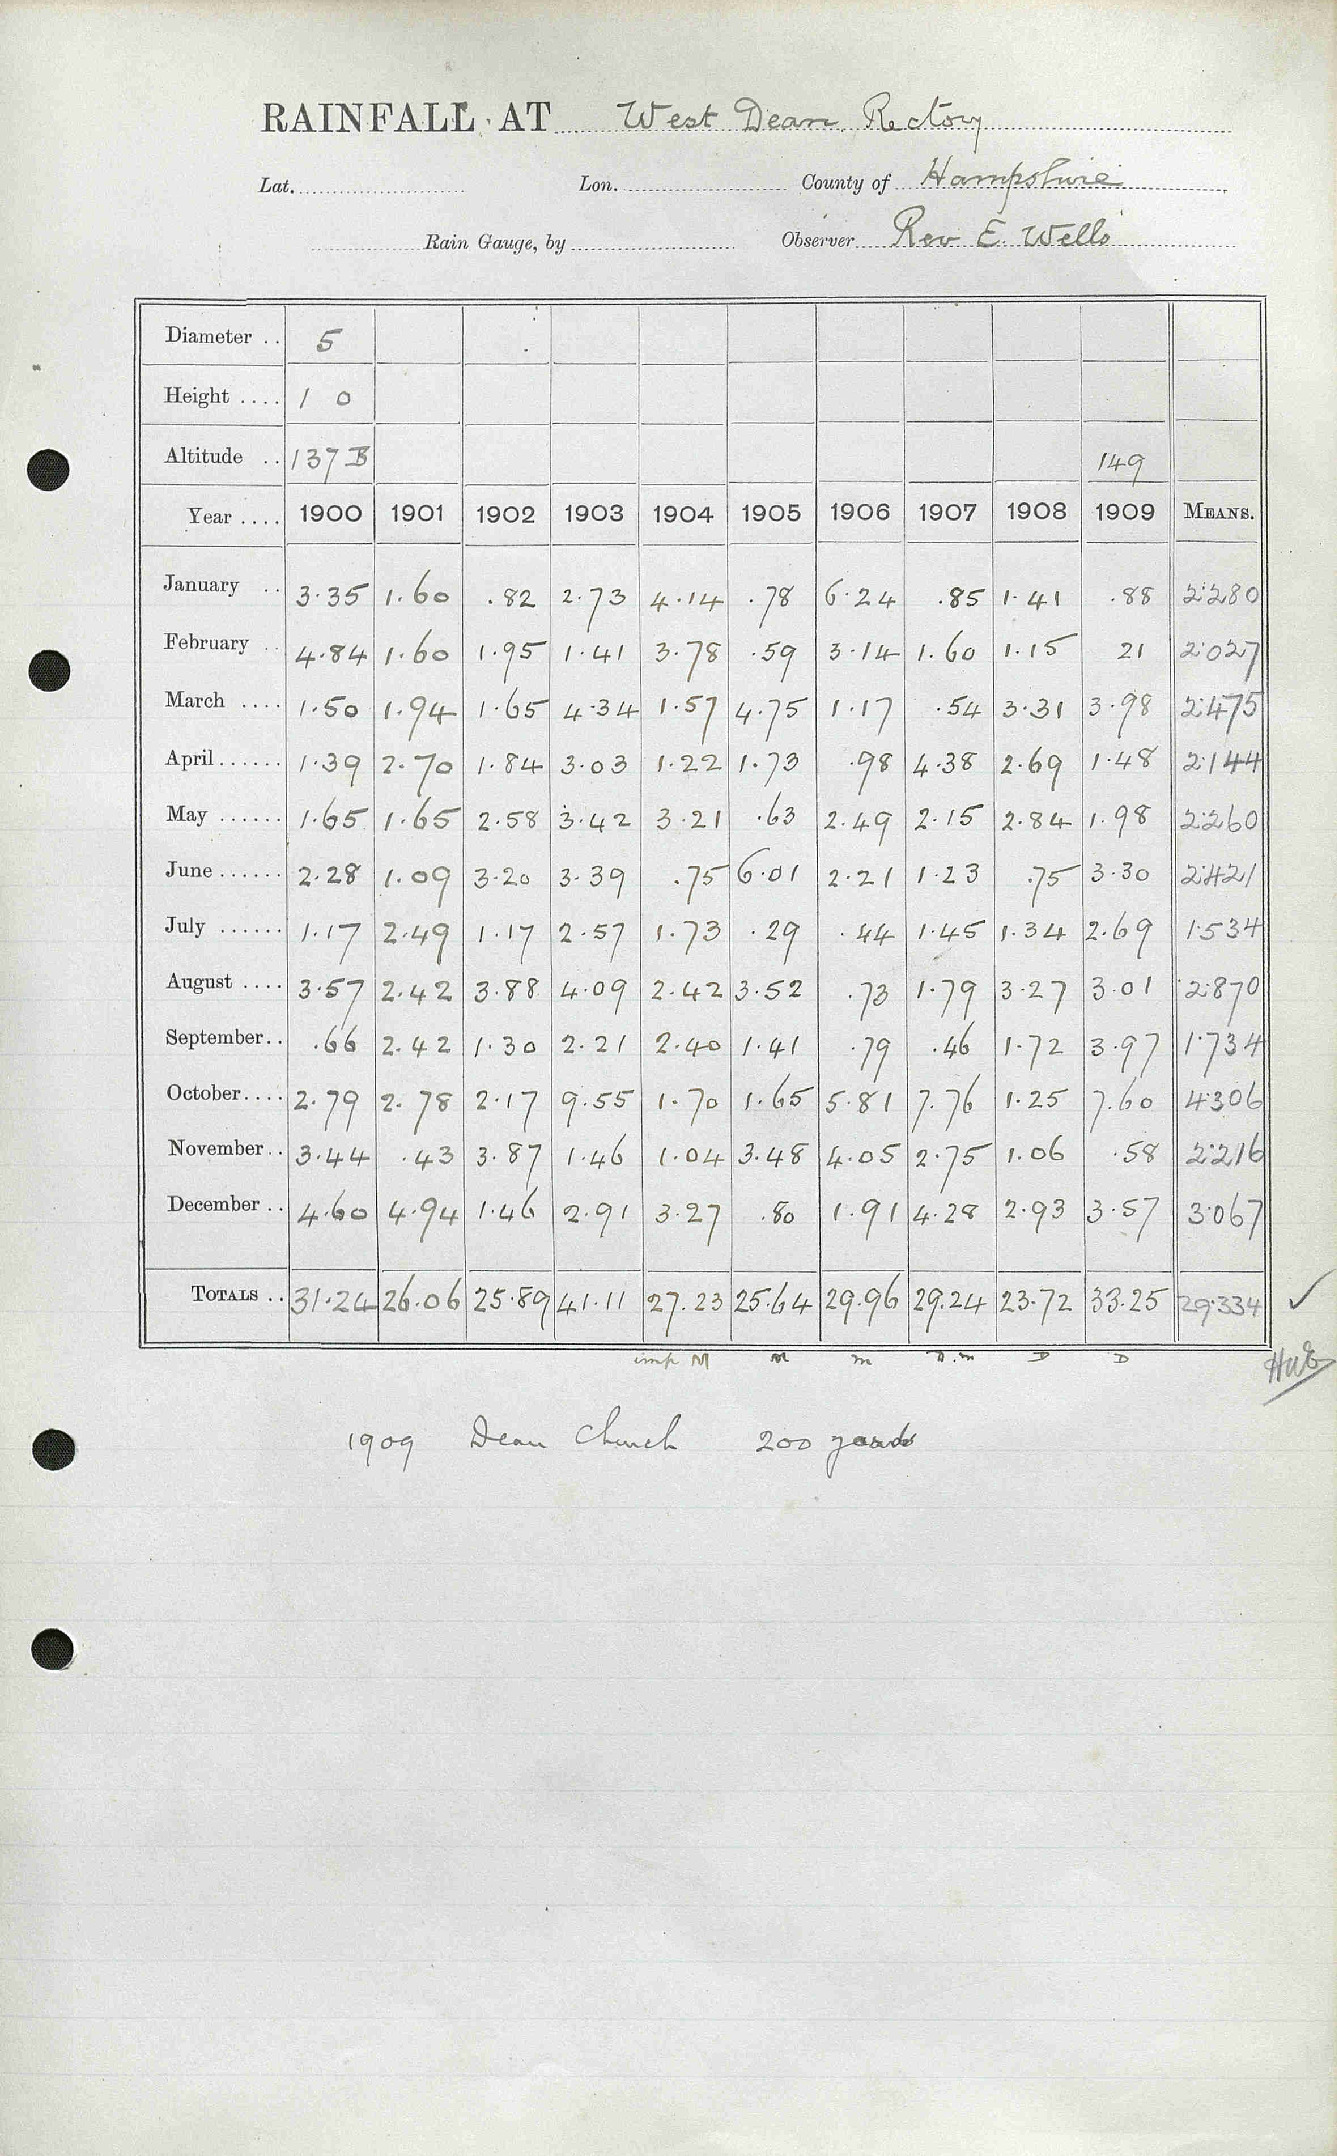 RAINFALL AT West Dean Rectory
Lat. Lon. County of Hampshire
Rain Gauge, by Observer Rev E. Wells
Diameter .. 5
Height .... 1 0
Altitude .. 137 B 149
Year .... 1900 1901 1902 1903 1904 1905 1906 1907 1908 1909 MEANS.
January .. 3.35 1.60 .82 2.73 4.14 .78 6.24 .85 1.41 .88 2.280
February .. 4.84 1.60 1.95 1.41 3.78 .59 3.14 1.60 1.15 21 2.027
March .... 1.50 1.94 1.65 4.34 1.57 4.75 1.17 .54 3.31 3.98 2.475
April...... 1.39 2.70 1.84 3.03 1.22 1.73 .98 4.38 2.69 1.48 2.144
May ...... 1.65 1.65 2.58 3.42 3.21 .63 2.49 2.15 2.84 1.98 2.260
June ...... 2.28 1.09 3.20 3.39 .75 6.01 2.21 1.23 .75 3.30 2.421
July ...... 1.17 2.49 1.17 2.57 1.73 .29 .44 1.45 1.34 2.69 1.534
August .... 3.57 2.42 3.88 4.09 2.42 3.52 .73 1.79 3.27 3.01 2.870
September.. .66 2.42 1.30 2.21 2.40 1.41 .79 .46 1.72 3.97 1.734
October.... 2.79 2.78 2.17 9.55 1.70 1.65 5.81 7.76 1.25 7.60 4.306
November.. 3.44 .43 3.87 1.46 1.04 3.48 4.05 2.75 1.06 .58 2.216
December .. 4.60 4.94 1.46 2.91 3.27 .80 1.91 4.28 2.93 3.57 3.067
TOTALS .. 31.24 26.06 25.89 41.11 27.23 25.64 29.96 29.24 23.72 33.25 29.334
imp M M m D.m D D
1909 Dean Church 200 yards